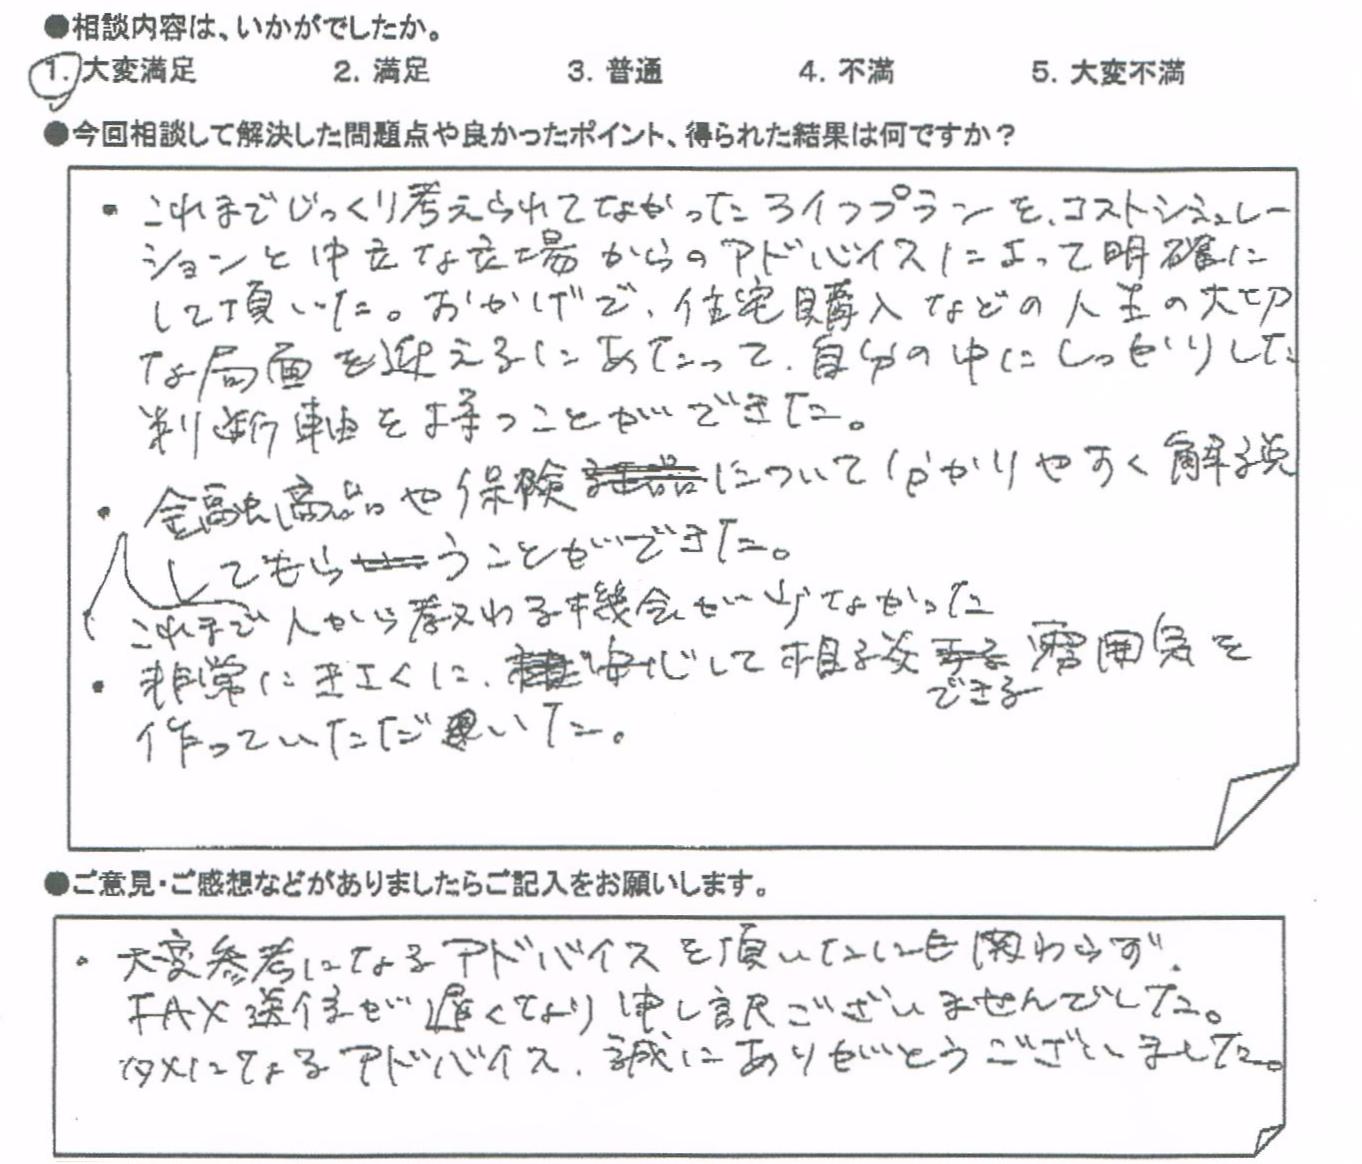 ●相談内容は、いかがでしたか。
1. 大変満足 2. 満足 3. 普通 4. 不満 5. 大変不満
●今回相談して解決した問題点や良かったポイント、得られた結果は何ですか？
・これまでじっくり考えられてなかったライフプランを、コストシミュレー
ションと中立な立場からのアドバイスによって明確に
して頂いた。おかげで、住宅購入などの人生の大切
な局面を迎えるにあたって、自分の中にしっかりした
判断軸を持つことができた。
・金融商品や保険について分かりやすく解説
してもらうことができた。
これまで人から教わる機会が少なかった
・非常にきさくに、安心して相談できる雰囲気を
作っていただいた。
●ご意見・ご感想などがありましたらご記入をお願いします。
・大変参考になるアドバイスを頂いたにも関わらず、
FAX送信が遅くなり申し訳ございませんでした。
タメになるアドバイス、誠にありがとうございました。